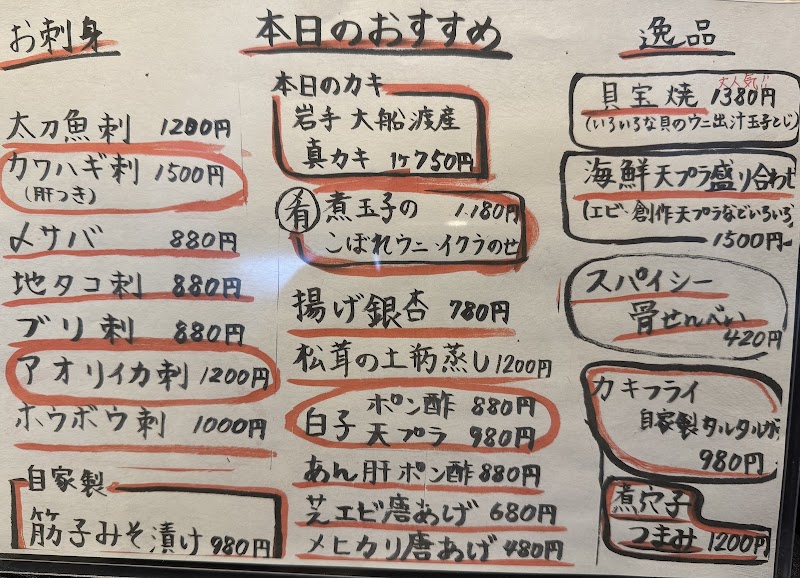 本日のおすすめ
お刺身
太刀魚刺 1200円
カワハギ刺 1500円
(肝つき)
〆サバ 880円
地タコ刺 880円
ブリ刺 880円
アオリイカ刺 1200円
ホウボウ刺 1000円
自家製
筋子みそ漬け 980円
本日のカキ
岩手 大船渡産
真カキ 1ケ750円
肴 煮玉子の 1.180円
こぼれウニ・イクラのせ
揚げ銀杏 780円
松茸の土柄蒸し 1200円
白子 ポン酢 880円
天プラ 980円
あん肝ポン酢 880円
芝エビ唐あげ 680円
メヒカリ唐あげ 480円
逸品
大人気!!
貝宝焼 1380円
(いろいろな貝のウニ出汁玉子とじ)
海鮮天プラ盛り合わせ
(エビ・創作天プラなどいろいろ)
1500円
スパイシー
骨せんべい
420円
カキフライ
自家製タルタルが
980円
煮穴子
つまみ 1200円